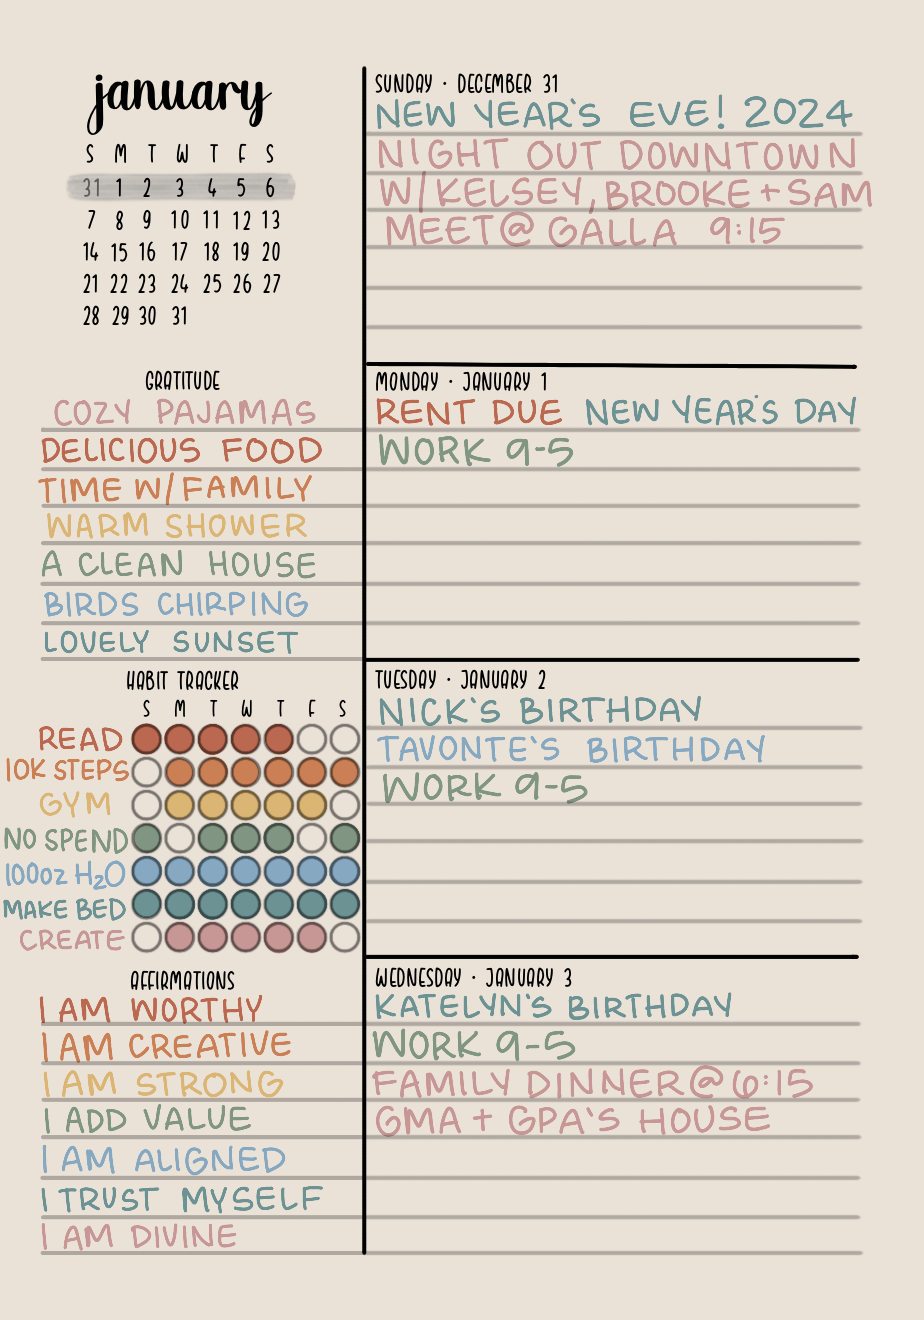 january
S M T W T F S
31 1 2 3 4 5 6
7 8 9 10 11 12 13
14 15 16 17 18 19 20
21 22 23 24 25 26 27
28 29 30 31
GRATITUDE
COZY PAJAMAS
DELICIOUS FOOD
TIME W/FAMILY
WARM SHOWER
A CLEAN HOUSE
BIRDS CHIRPING
LOVELY SUNSET
HABIT TRACKER
S M T W T F S
READ
10K STEPS
GYM
NO SPEND
100oz H₂O
MAKE BED
CREATE
AFFIRMATIONS
I AM WORTHY
I AM CREATIVE
I AM STRONG
I ADD VALUE
I AM ALIGNED
I TRUST MYSELF
I AM DIVINE
SUNDAY · DECEMBER 31
NEW YEAR'S EVE! 2024
NIGHT OUT DOWNTOWN
W/KELSEY, BROOKE+SAM
MEET@ GALLA 9:15
MONDAY · JANUARY 1
RENT DUE NEW YEAR'S DAY
WORK 9-5
TUESDAY · JANUARY 2
NICK'S BIRTHDAY
TAVONTE'S BIRTHDAY
WORK 9-5
WEDNESDAY · JANUARY 3
KATELYN'S BIRTHDAY
WORK 9-5
FAMILY DINNER@6:15
GMA + GPA'S HOUSE